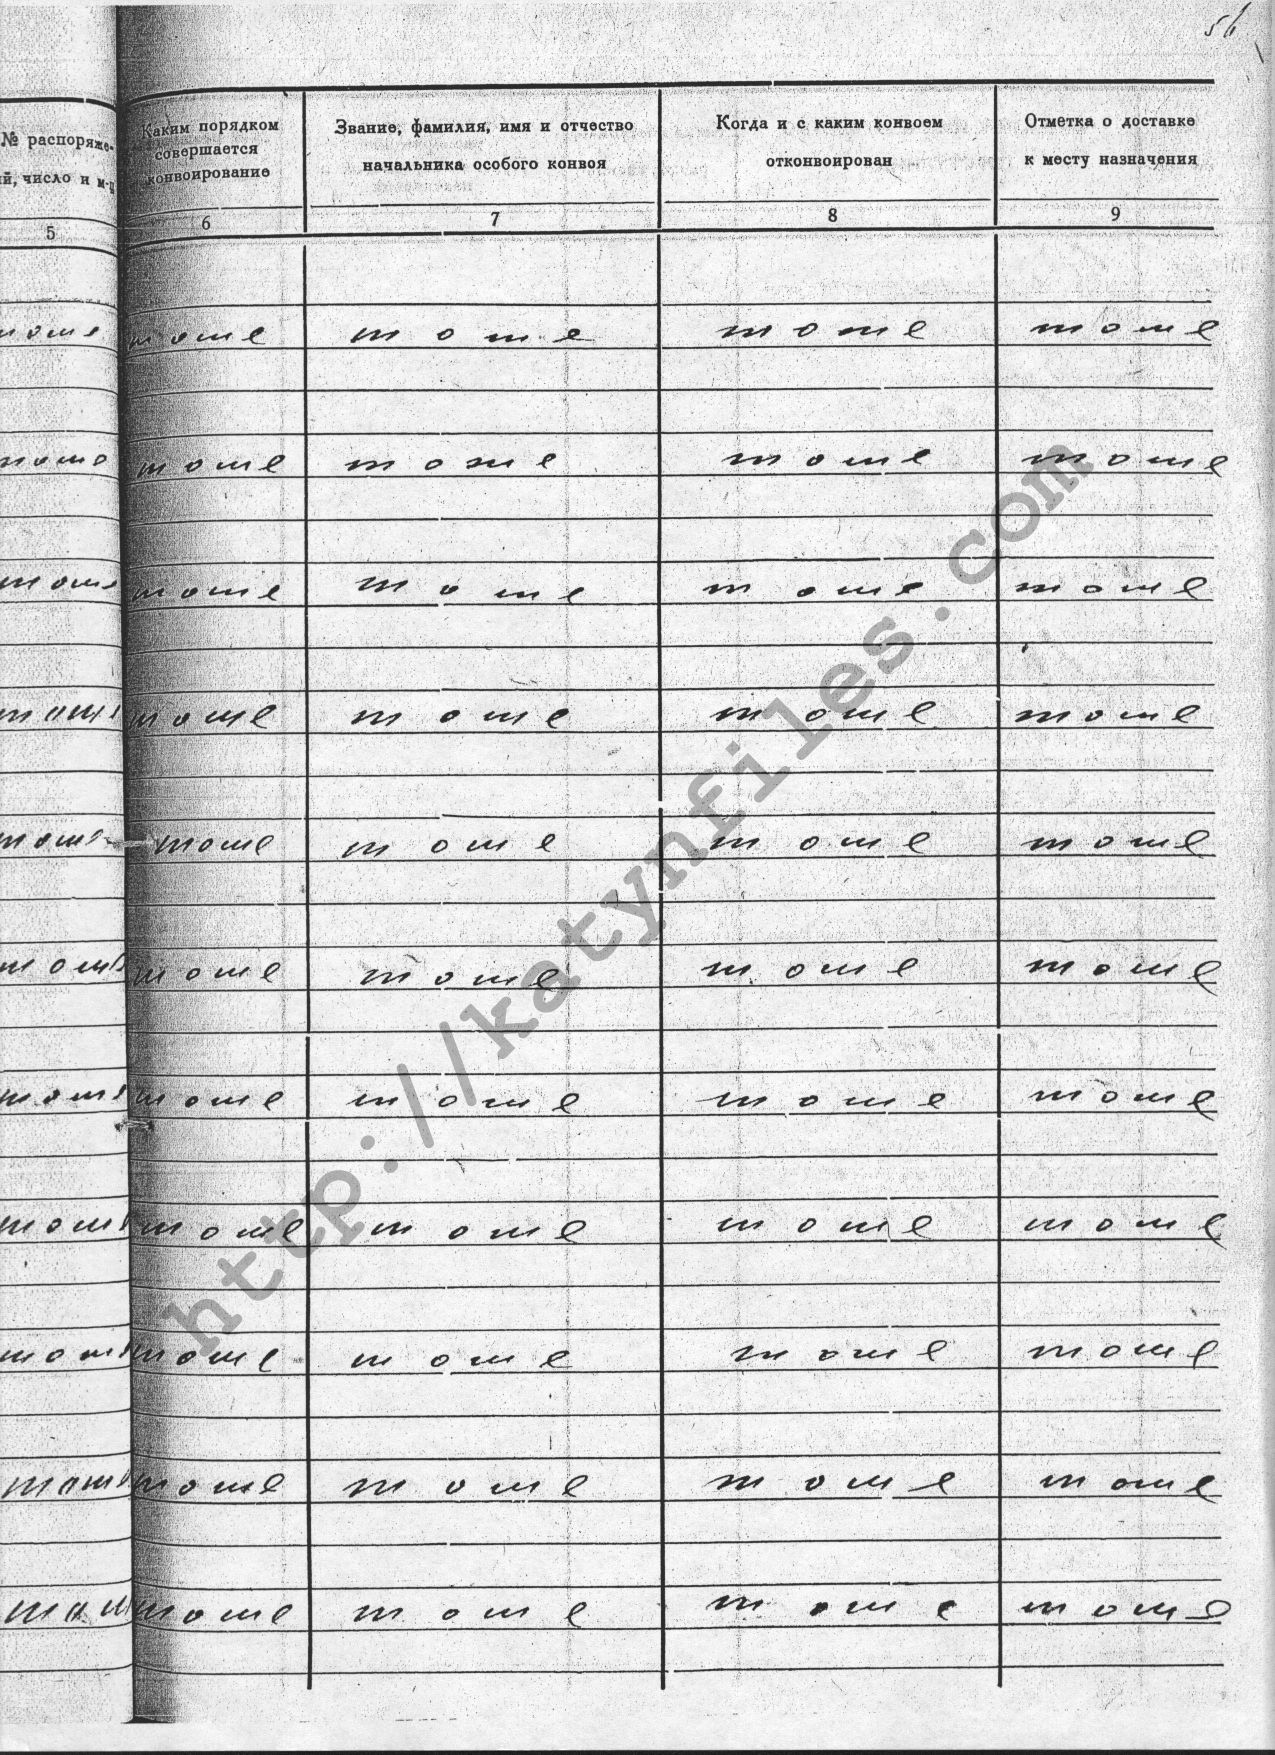 56
№ распоряже-
ий, число и м-ц
Каким порядком
совершается
конвоирование
Звание, фамилия, имя и отчество
начальника особого конвоя
Когда и с каким конвоем
отконвоирован
Отметка о доставке
к месту назначения
5 6 7 8 9
тоже тоже тоже тоже тоже
тоже тоже тоже тоже тоже
тоже тоже тоже тоже тоже
тоже тоже тоже тоже тоже
тоже тоже тоже тоже тоже
тоже тоже тоже тоже тоже
тоже тоже тоже тоже тоже
тоже тоже тоже тоже тоже
тоже тоже тоже тоже тоже
тоже тоже тоже тоже тоже
тоже тоже тоже тоже тоже
http://katynfiles.com